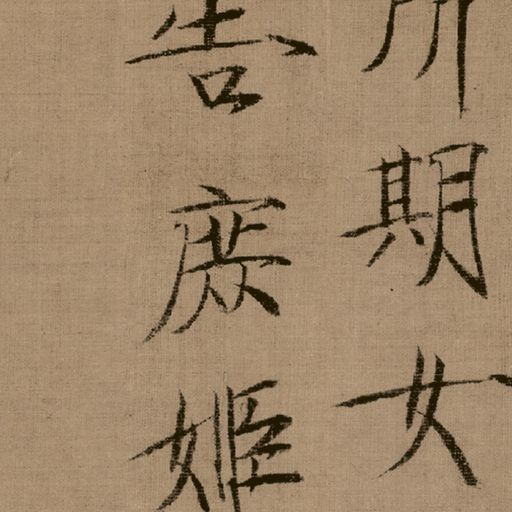 所期女
告庶姬